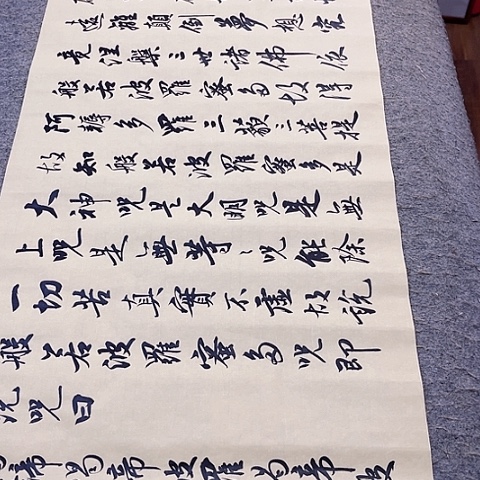 遠離顛倒夢想究
竟涅槃三世諸佛依
般若波羅蜜多故得
阿耨多羅三藐三菩提
故知般若波羅蜜多是
大神咒是大明咒是無
上咒是無等々咒能除
一切苦真實不虛故說
般若波羅蜜多咒即
說咒曰
諦揭諦波羅揭諦波